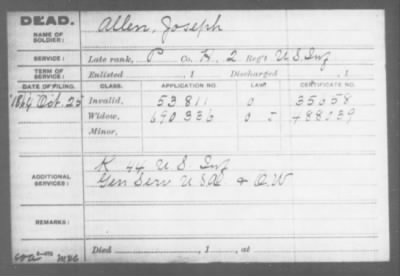 DEAD.
NAME OF SOLDIER:
Allen, Joseph
SERVICE:
Late rank, P Co. K, 2 Reg't U.S. Inf
TERM OF SERVICE:
Enlisted , 1 Discharged , 1
DATE OF FILING. CLASS. APPLICATION NO. LAW. CERTIFICATE NO.
Oct. 25 Invalid, 53811 35058
Widow, 690336 488039
Minor,
ADDITIONAL SERVICES:
K 44 U.S. Inf
Gen Serv U.S.A. &
REMARKS:
Died , 1 , at